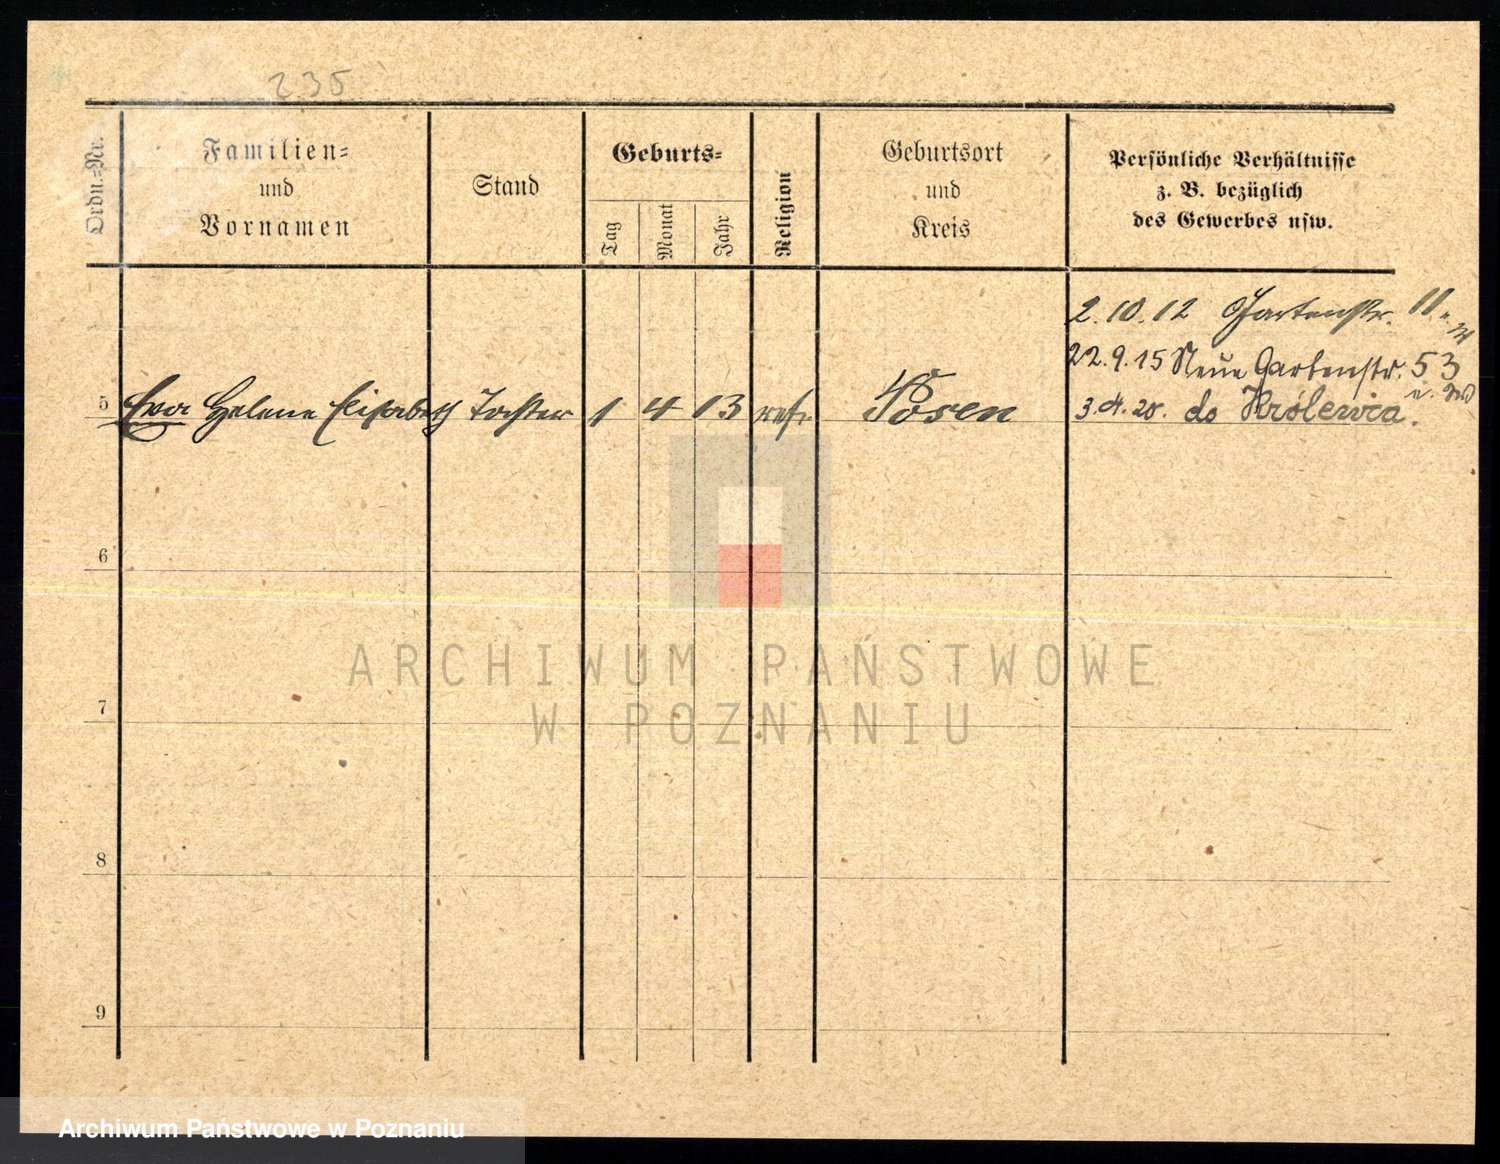 235
Ordn.-Nr.
Familien-
und
Vornamen
Stand
Geburts-
Tag
Monat
Jahr
Religion
Geburtsort
und
Kreis
Persönliche Verhältnisse
z. B. bezüglich
des Gewerbes usw.
2.10.12 Gartenstr. 11.
22.9.15 Neue Gartenstr. 53
5 Eva Helene Elisabeth Tochter 1 4 13 ref. Posen 3.4.20. do Królewca.
6
7
8
9
ARCHIWUM PAŃSTWOWE
W POZNANIU
Archiwum Państwowe w Poznaniu